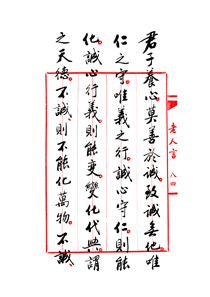 君子養心莫善於誠致誠無他唯
仁之守唯義之行誠心守仁則能
化誠心行義則能變變化代興謂
之天德不誠則不能化萬物不誠
老人言 八四